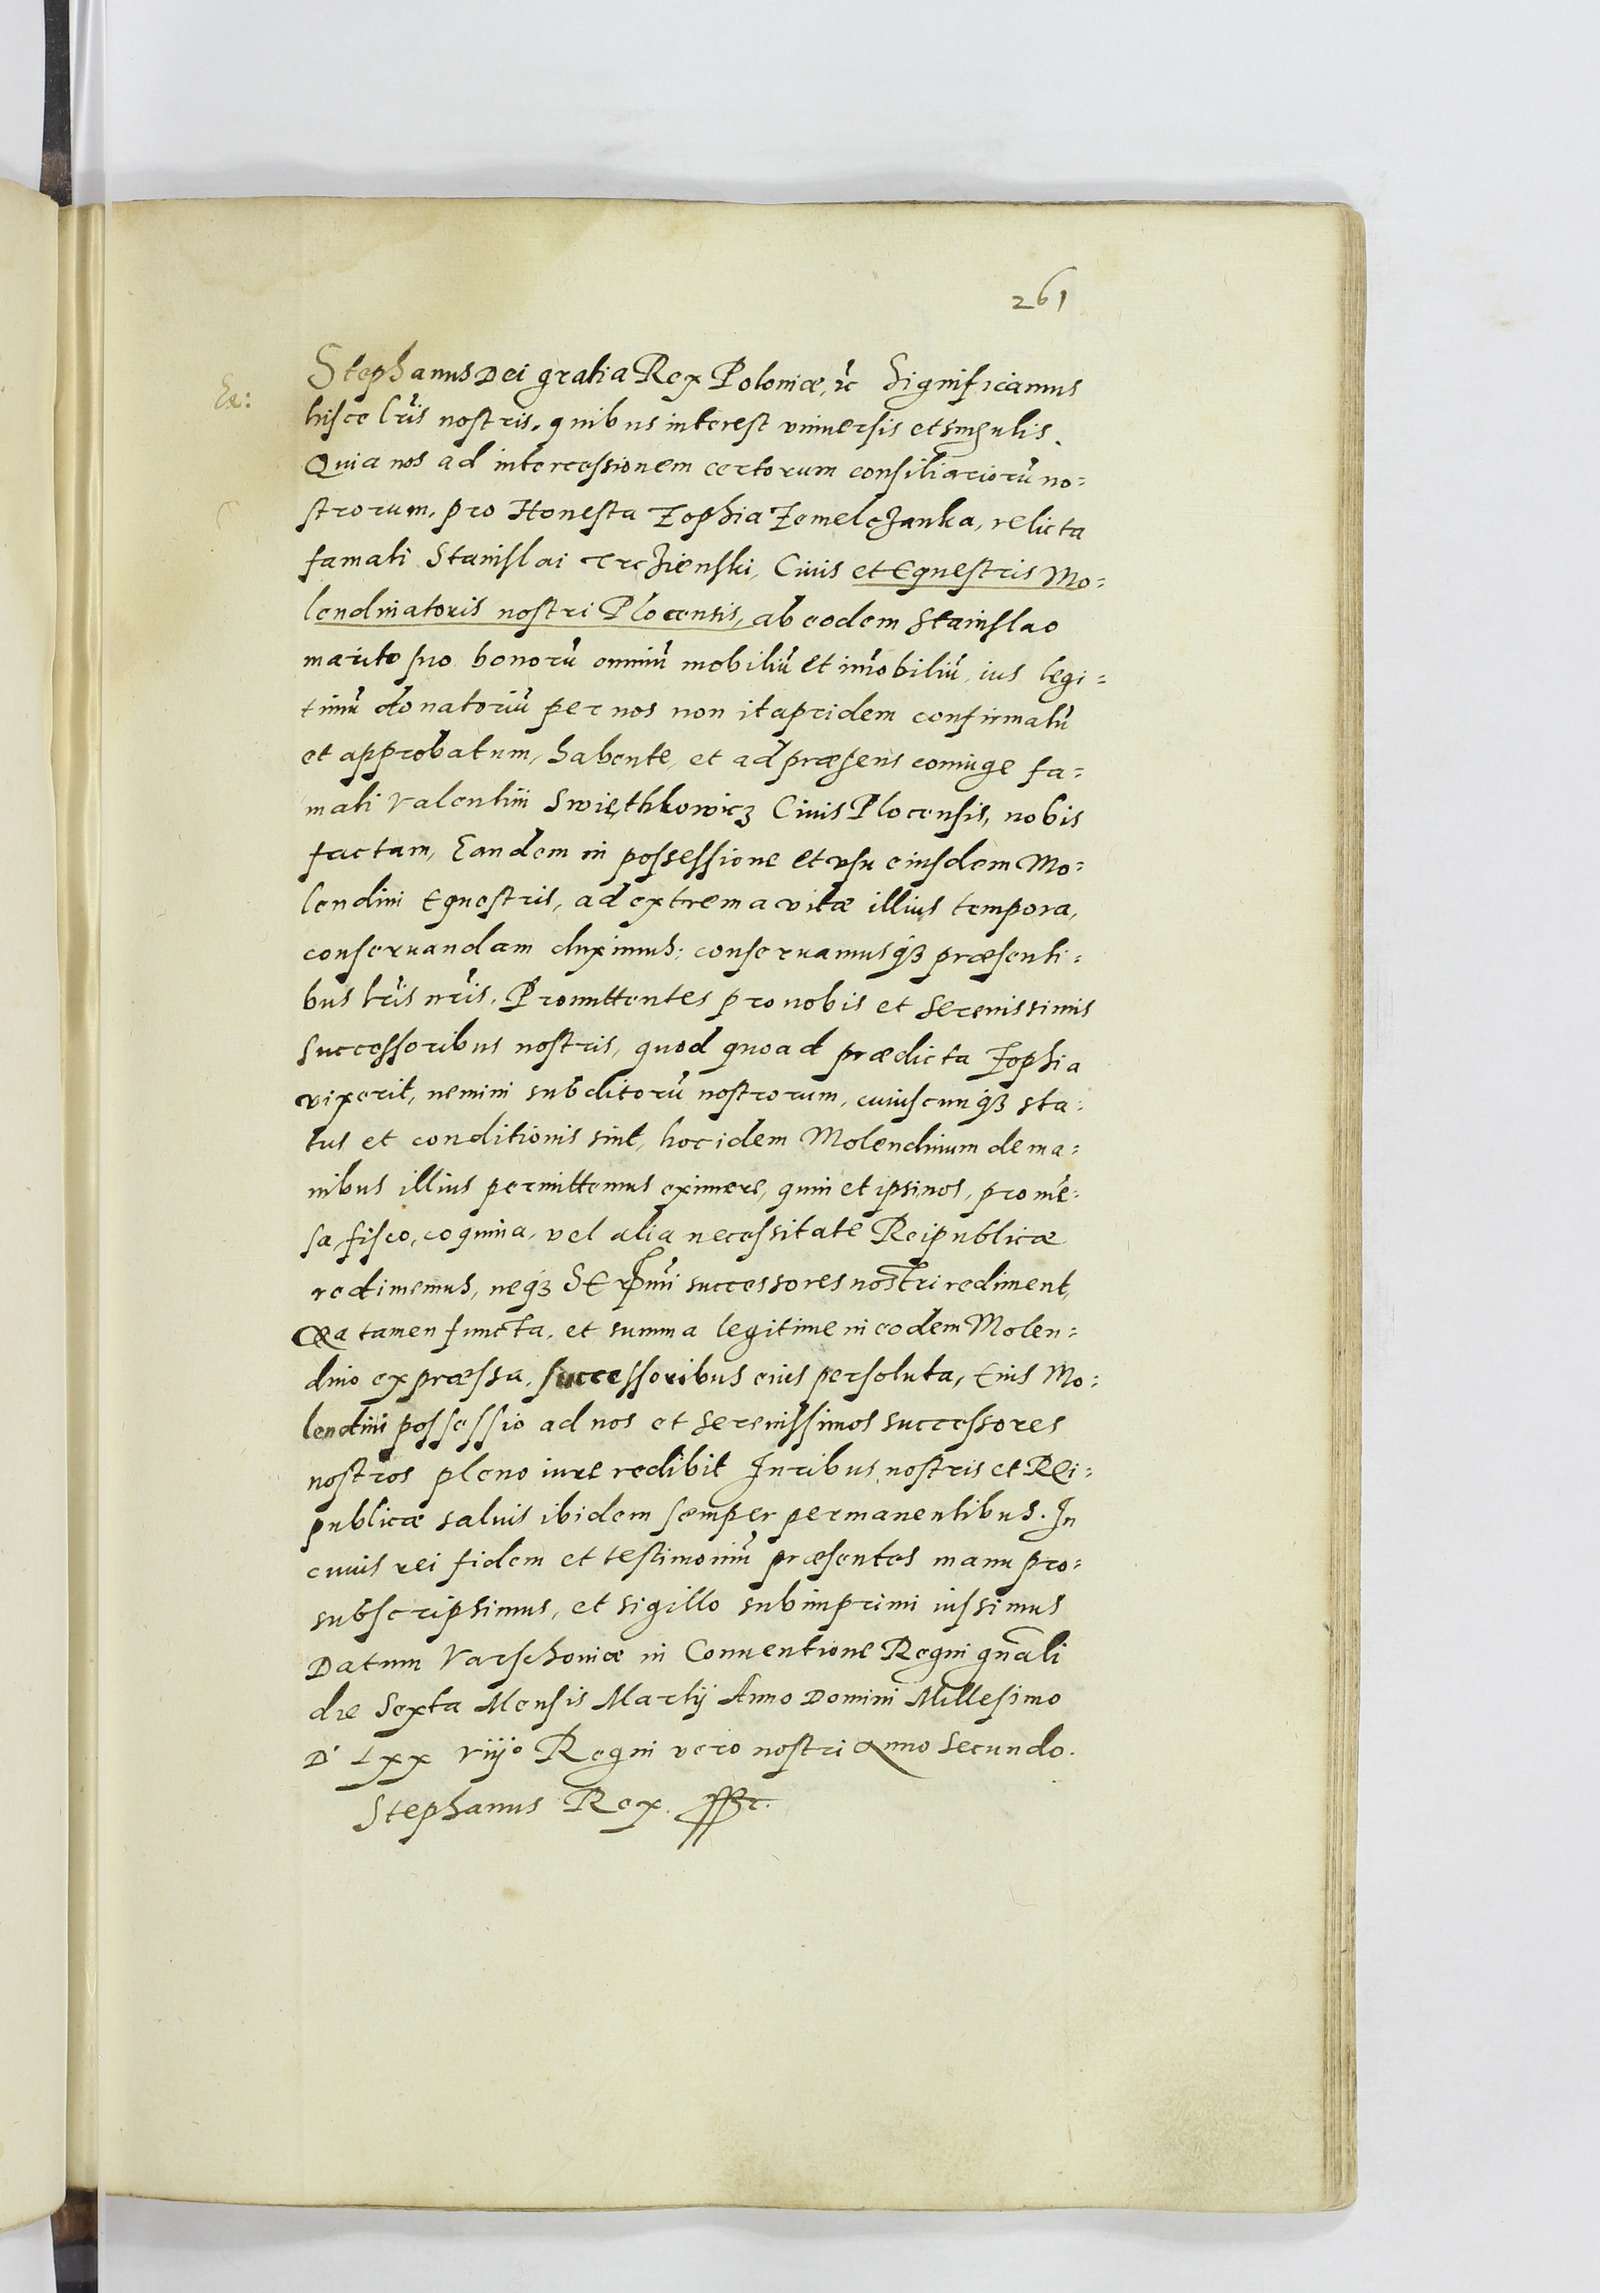 261
Ex:
Stephanus Dei gratia Rex Poloniæ, &c Significamus
hisce lr̃is nostris, quibus interest vniuersis et singulis.
Quia nos ad intercessionem certorum consiliariorũ no=
strorum, pro Honesta Zophia Zemelczanka, relicta
famati Stanislai Trczienski, Ciuis et Equestris Mo=
lendinatoris nostri Plocensis, ab eodem Stanislao
marito suo bonorũ omniũ mobiliũ et im̃obiliũ, ius legi=
timũ donatoriũ per nos non itapridem confirmatũ
et approbatum, habente, et ad præsens coniuge fa=
mati Valentini Swięthkowicz Ciuis Plocensis, nobis
factam, Eandem in possessione et vsu eiusdem Mo=
lendini Equestris, ad extrema vitæ illius tempora,
conseruandam duximus; conseruamusq₃ præsenti=
bus lr̃is nr̃is. Promittentes pro nobis et Serenissimis
Successoribus nostris, quod quoad prædicta Zophia
vixerit, nemini subditorũ nostrorum, cuiuscunq₃ sta=
tus et conditionis sint, hoc idem Molendinum de ma=
nibus illius permittemus eximere, quin et ipsi nos, pro mẽ=
sa, fisco, coquina, vel alia necessitate Reipublicæ
redimemus, neq₃ Ser̃mi successores nostri rediment,
Ea tamen functa, et summa legitime in eodem Molen=
dino expræssa, successoribus eius persoluta, Eius Mo=
lendini possessio ad nos et serenissimos successores
nostros pleno iure redibit Juribus nostris et Rei=
publicæ saluis ibidem semper permanentibus. In
cuius rei fidem et testimoniũ præsentes manu pro=
subscripsimus, et sigillo subimprimi iussimus
Datum Varschouiæ in Conuentione Regni gñali
die Sexta Mensis Martij Anno Domini Millesimo
D° Lxx viijo Regni vero nostri Anno Secundo.
Stephanus Rex.